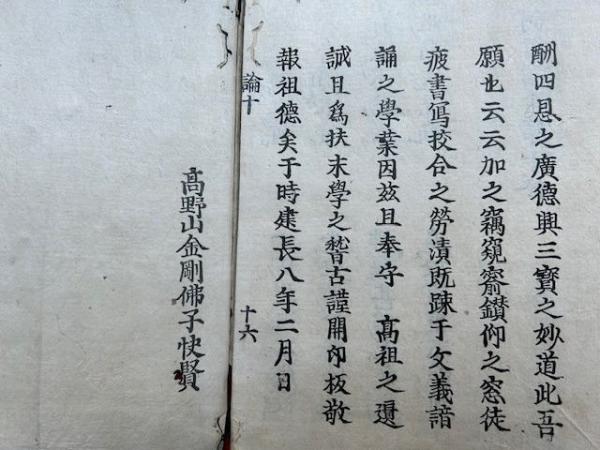 酬四恩之廣德興三寶之妙道此吾
願也云云加之竊窺齋鑚仰之窓徒
疲書寫挍合之勞漬既踈于文義諳
誦之學業因玆且奉守 高祖之遺
誡且爲扶末學之稽古謹開印板敬
報祖德矣于時建長八年二月日
論十 十六
高野山金剛佛子快賢